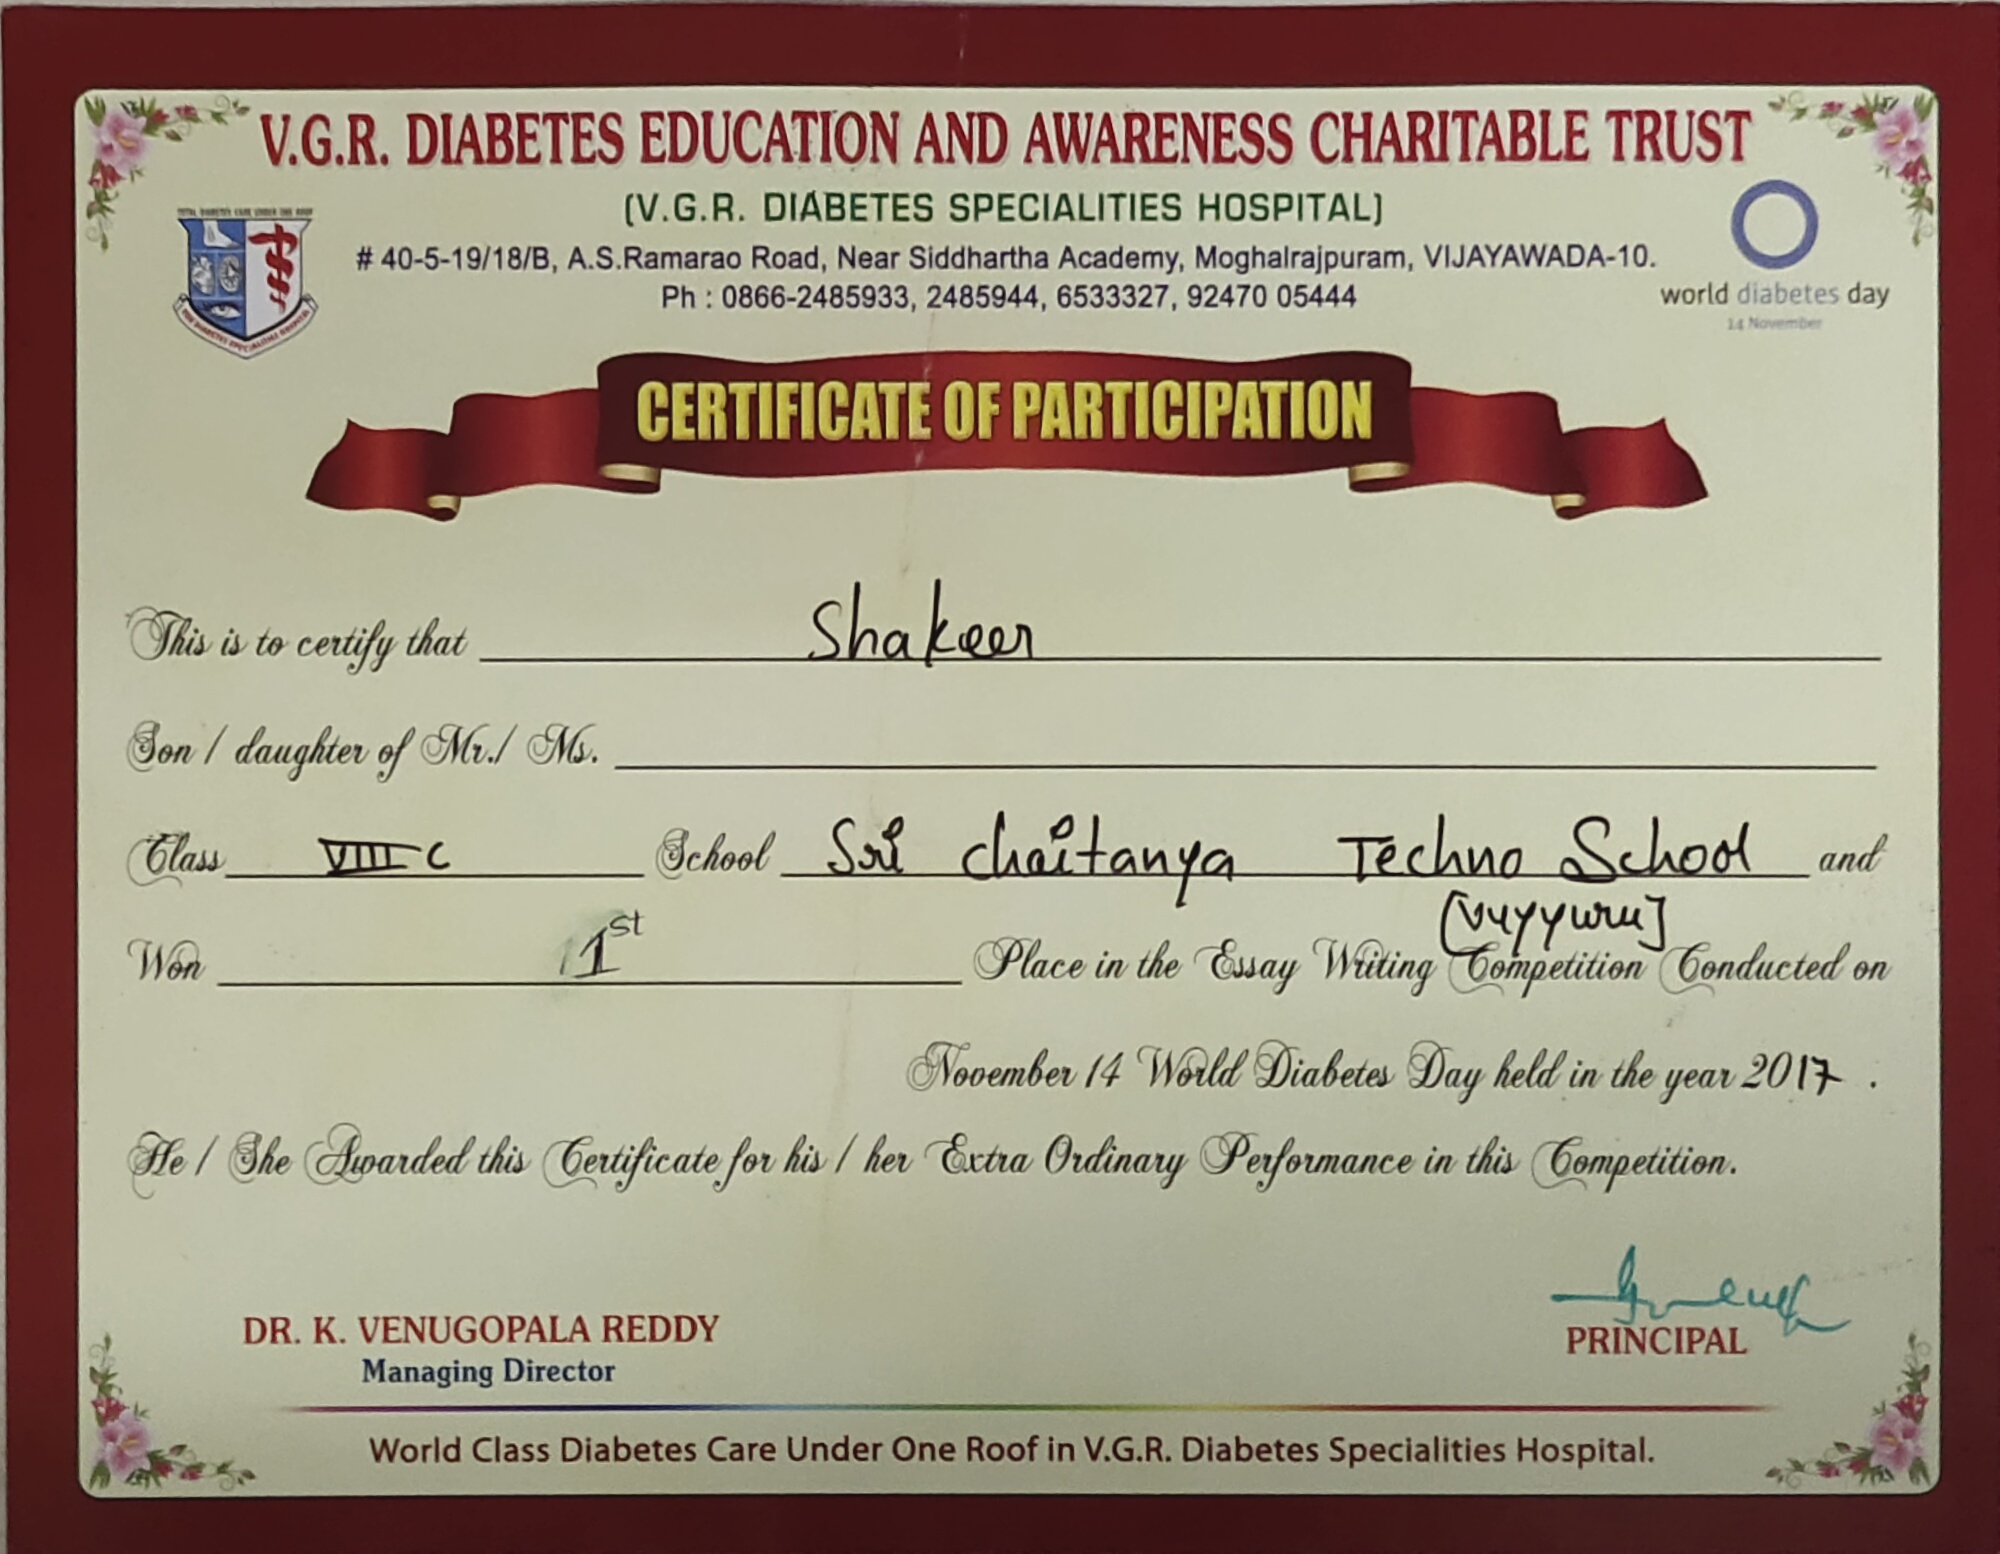 V.G.R. DIABETES EDUCATION AND AWARENESS CHARITABLE TRUST
(V.G.R. DIABETES SPECIALITIES HOSPITAL)
# 40-5-19/18/B, A.S.Ramarao Road, Near Siddhartha Academy, Moghalrajpuram, VIJAYAWADA-10.
Ph : 0866-2485933, 2485944, 6533327, 92470 05444
TOTAL DIABETES CARE UNDER ONE ROOF
VGR DIABETES SPECIALITIES HOSPITAL
world diabetes day
14 November
CERTIFICATE OF PARTICIPATION
This is to certify that Shakeer
Son / daughter of Mr./ Ms.
Class VIII C School Sri Chaitanya Techno School and
[Vuyyuru]
Won 1st Place in the Essay Writing Competition Conducted on
November 14 World Diabetes Day held in the year 2017 .
He / She Awarded this Certificate for his / her Extra Ordinary Performance in this Competition.
DR. K. VENUGOPALA REDDY
Managing Director
PRINCIPAL
World Class Diabetes Care Under One Roof in V.G.R. Diabetes Specialities Hospital.